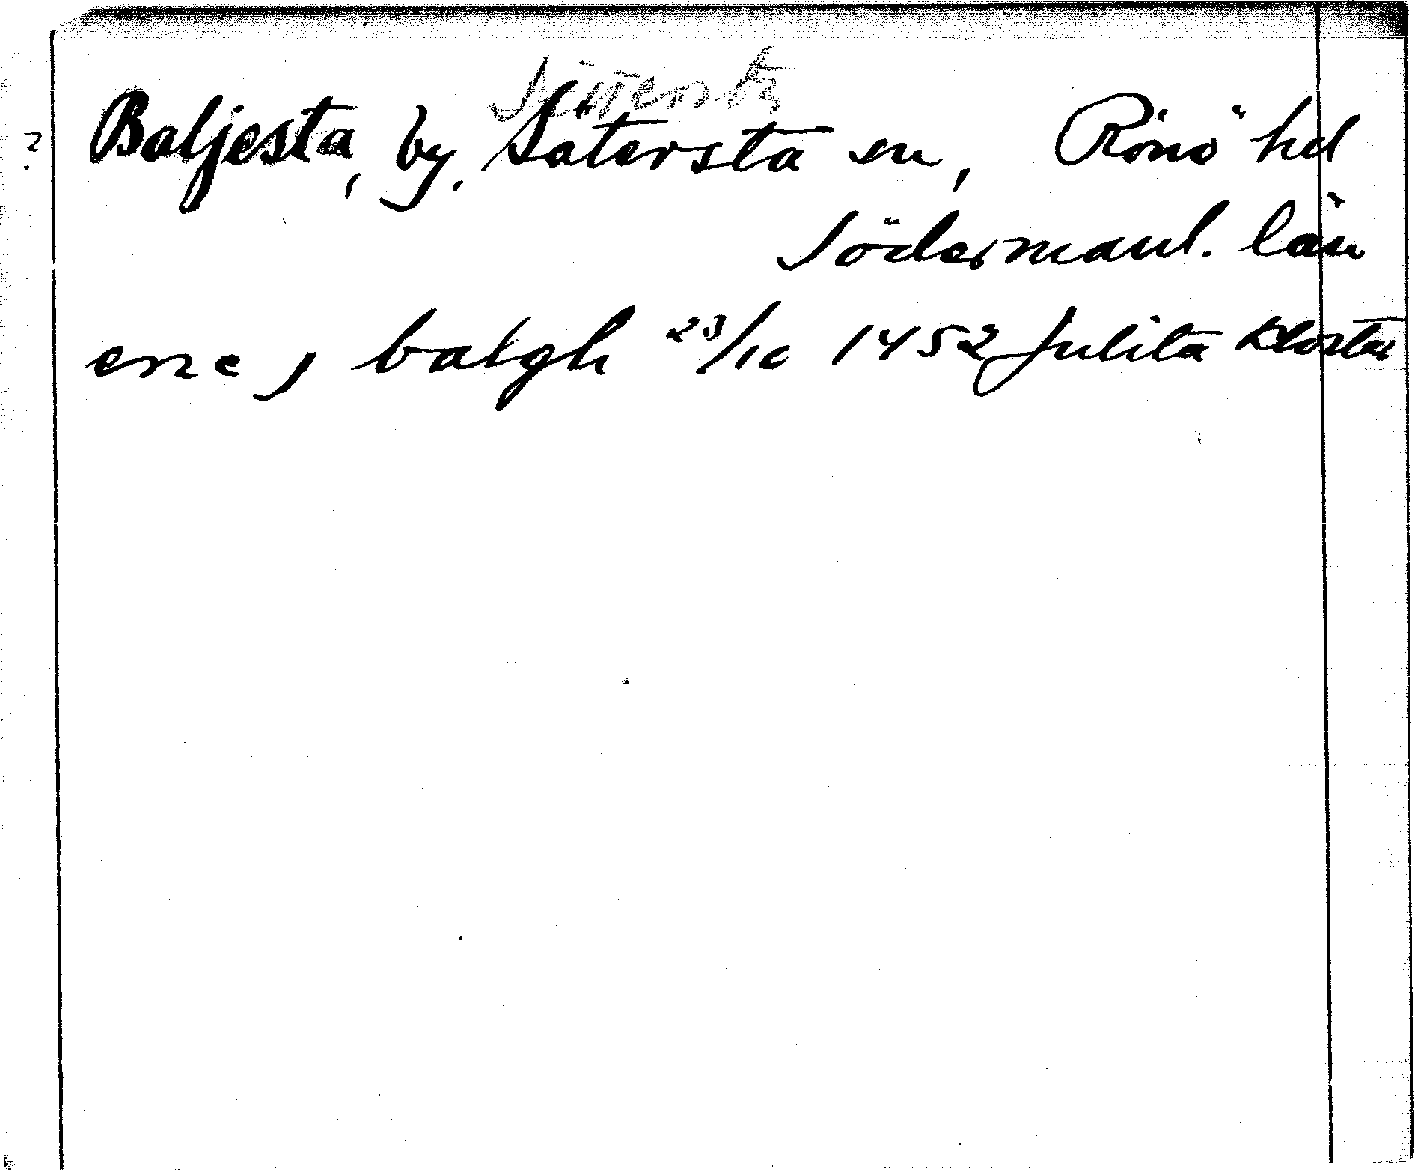 ? Baljesta, by. Sätersta sn, Rönö hd
Södermanl. län
ene j balgh 23/10 1452 Julita kloster